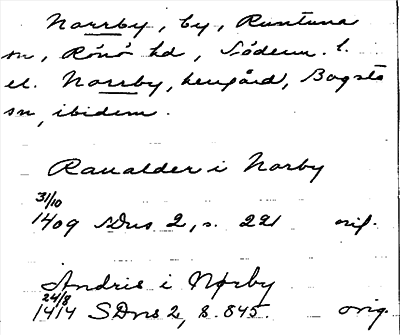 Norrby, by, Runtuna
sn, Rönö hd, Söderm. l.
el. Norrby, herrgård, Bogsta
sn, ibidem.
Ranalder i Norby
31/10
1409 SDns 2, s. 221 orig.
Andris i Norby
24/8
1414 SDns 2, s. 845. orig.